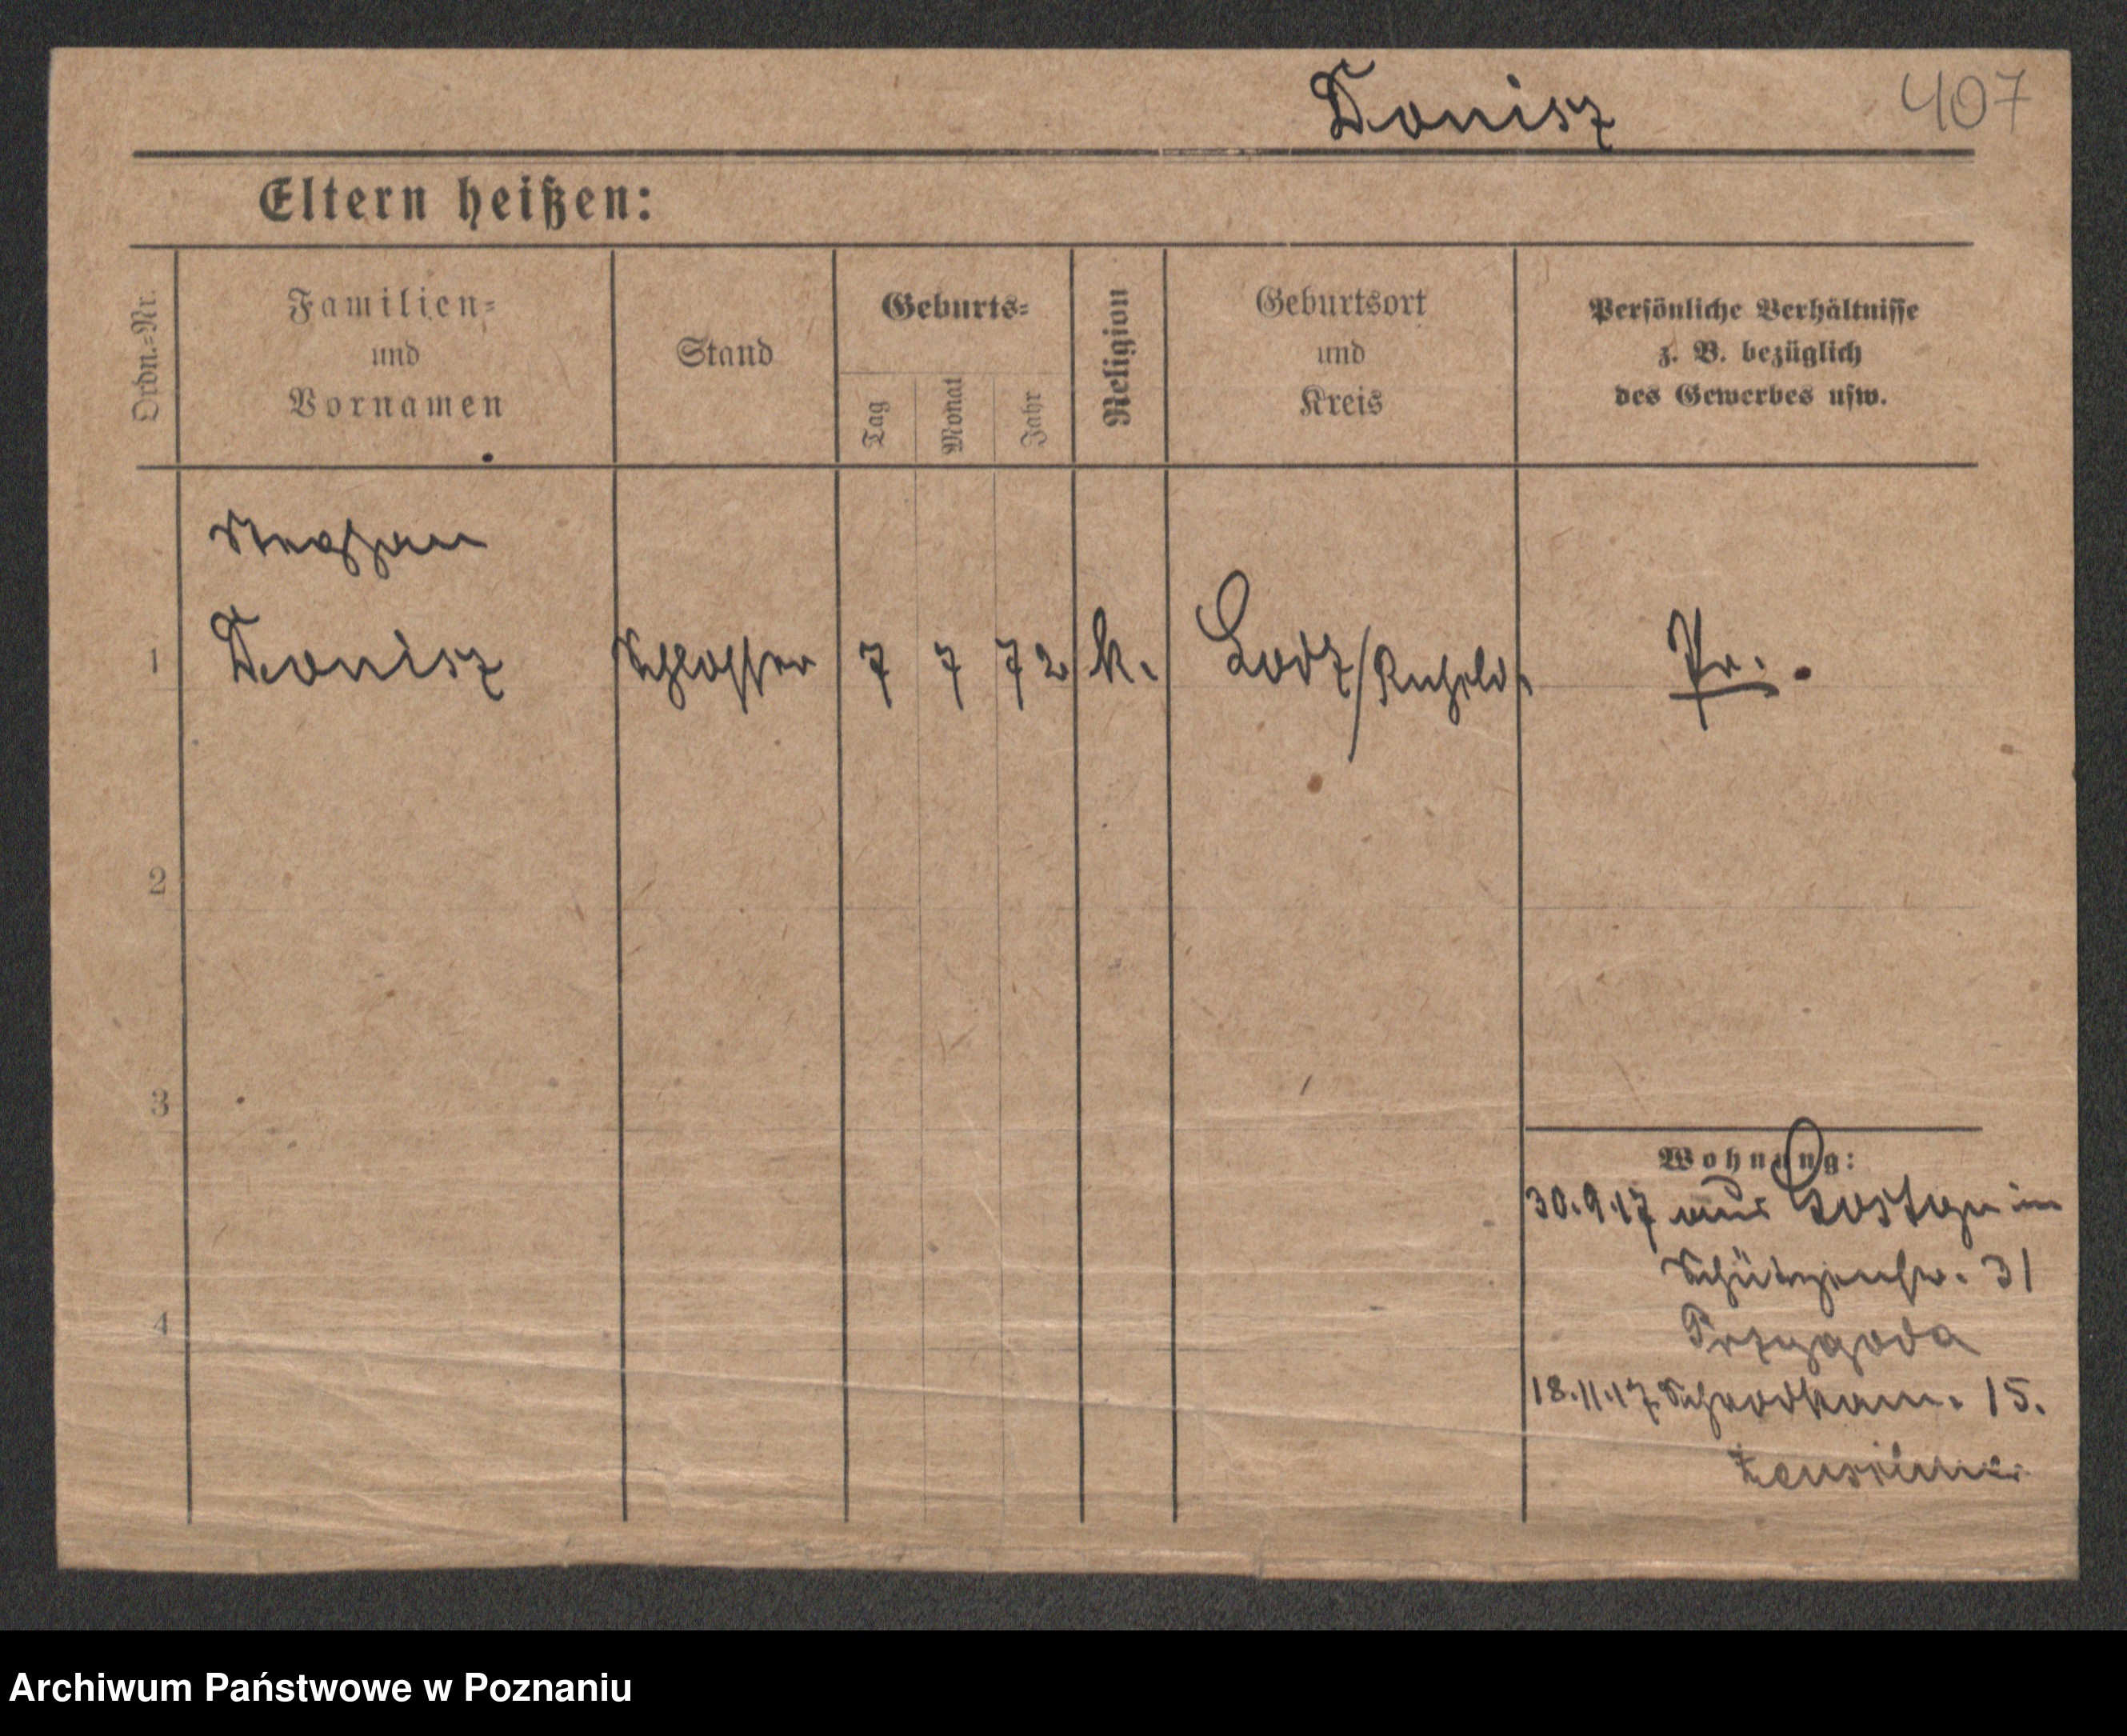 Donisz
407
Eltern heißen:
Ordn.-Nr.
Familien-
und
Vornamen
Stand
Geburts-
Tag
Monat
Jahr
Religion
Geburtsort
und
Kreis
Persönliche Verhältnisse
z. B. bezüglich
des Gewerbes usw.
Stephan
1 Donisz Schlosser 7 7 72 k. Lodz/Rußld. Pr.
2
3
4
Wohnung:
30.9.17 aus Gostyn in
Schützenstr. 31
Przygoda
18.11.17 15.
Archiwum Państwowe w Poznaniu